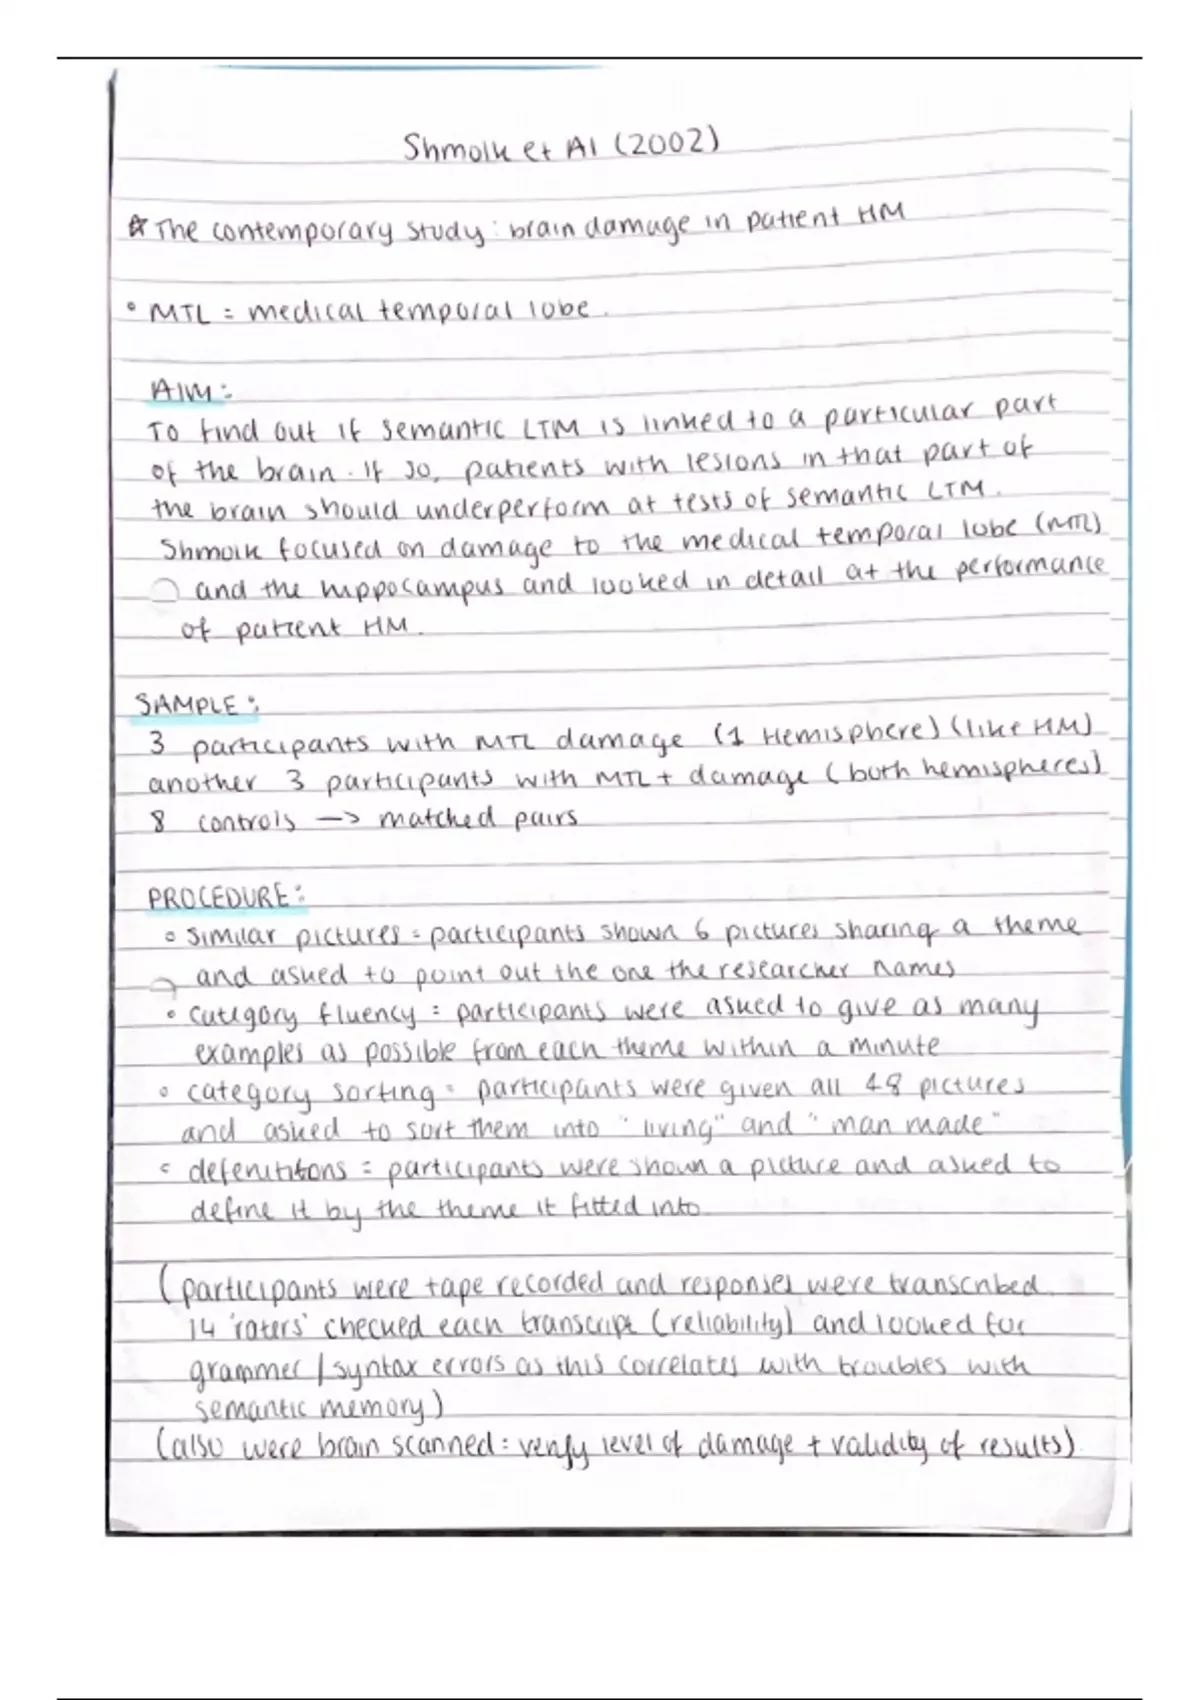 Shmolk et Al (2002)
☆ The contemporary study: brain damage in patient HM
• MTL = medical temporal lobe.
AIM:
To find out if semantic LTM is linked to a particular part
of the brain. If so, patients with lesions in that part of
the brain should underperform at tests of semantic LTM.
Shmolk focused on damage to the medical temporal lobe (MTL)
and the hippocampus and looked in detail at the performance
of patient HM.
SAMPLE:
3 participants with MTL damage (1 Hemisphere) (like HM)
another 3 participants with MTL+ damage (both hemispheres)
8 controls —> matched pairs
PROCEDURE:
• similar pictures = participants shown 6 pictures sharing a theme
and asked to point out the one the researcher names
• category fluency = participants were asked to give as many
examples as possible from each theme within a minute
• category sorting = participants were given all 48 pictures
and asked to sort them into "living" and "man made"
• defenititons = participants were shown a picture and asked to
define it by the theme it fitted into
(participants were tape recorded and responses were transcribed.
14 'raters' checked each transcript (reliability) and looked for
grammer / syntax errors as this correlates with troubles with
semantic memory)
(also were brain scanned: verify level of damage + validity of results).